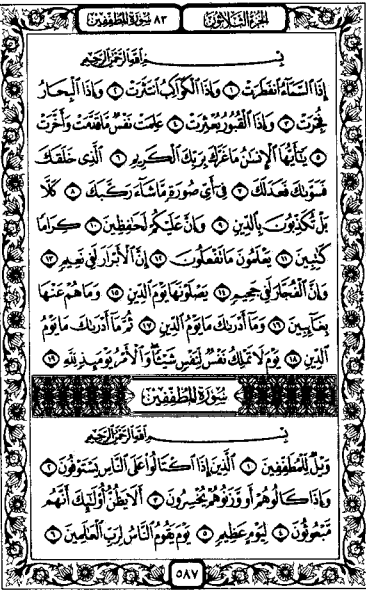 الجزء الثلاثون
٨٣ سورة المطففين
بسم الله الرحمن الرحيم
إِذَا السَّمَاءُ انفَطَرَتْ ١ وَإِذَا الْكَوَاكِبُ انتَثَرَتْ ٢ وَإِذَا الْبِحَارُ
فُجِّرَتْ ٣ وَإِذَا الْقُبُورُ بُعْثِرَتْ ٤ عَلِمَتْ نَفْسٌ مَّا قَدَّمَتْ وَأَخَّرَتْ
٥ يَٰٓأَيُّهَا الْإِنسَٰنُ مَا غَرَّكَ بِرَبِّكَ الْكَرِيمِ ٦ الَّذِي خَلَقَكَ
فَسَوَّىٰكَ فَعَدَلَكَ ٧ فِي أَيِّ صُورَةٍ مَّا شَاءَ رَكَّبَكَ ٨ كَلَّا
بَلْ تُكَذِّبُونَ بِالدِّينِ ٩ وَإِنَّ عَلَيْكُمْ لَحَٰفِظِينَ ١٠ كِرَامًا
كَٰتِبِينَ ١١ يَعْلَمُونَ مَا تَفْعَلُونَ ١٢ إِنَّ الْأَبْرَارَ لَفِي نَعِيمٍ ١٣
وَإِنَّ الْفُجَّارَ لَفِي جَحِيمٍ ١٤ يَصْلَوْنَهَا يَوْمَ الدِّينِ ١٥ وَمَا هُمْ عَنْهَا
بِغَائِبِينَ ١٦ وَمَا أَدْرَىٰكَ مَا يَوْمُ الدِّينِ ١٧ ثُمَّ مَا أَدْرَىٰكَ مَا يَوْمُ
الدِّينِ ١٨ يَوْمَ لَا تَمْلِكُ نَفْسٌ لِّنَفْسٍ شَيْئًا وَالْأَمْرُ يَوْمَئِذٍ لِّلَّهِ ١٩
سُورَةُ الْمُطَفِّفِينَ
بسم الله الرحمن الرحيم
وَيْلٌ لِّلْمُطَفِّفِينَ ١ الَّذِينَ إِذَا اكْتَالُوا عَلَى النَّاسِ يَسْتَوْفُونَ ٢
وَإِذَا كَالُوهُمْ أَو وَّزَنُوهُمْ يُخْسِرُونَ ٣ أَلَا يَظُنُّ أُولَٰئِكَ أَنَّهُم
مَّبْعُوثُونَ ٤ لِيَوْمٍ عَظِيمٍ ٥ يَوْمَ يَقُومُ النَّاسُ لِرَبِّ الْعَٰلَمِينَ ٦
٥٨٧